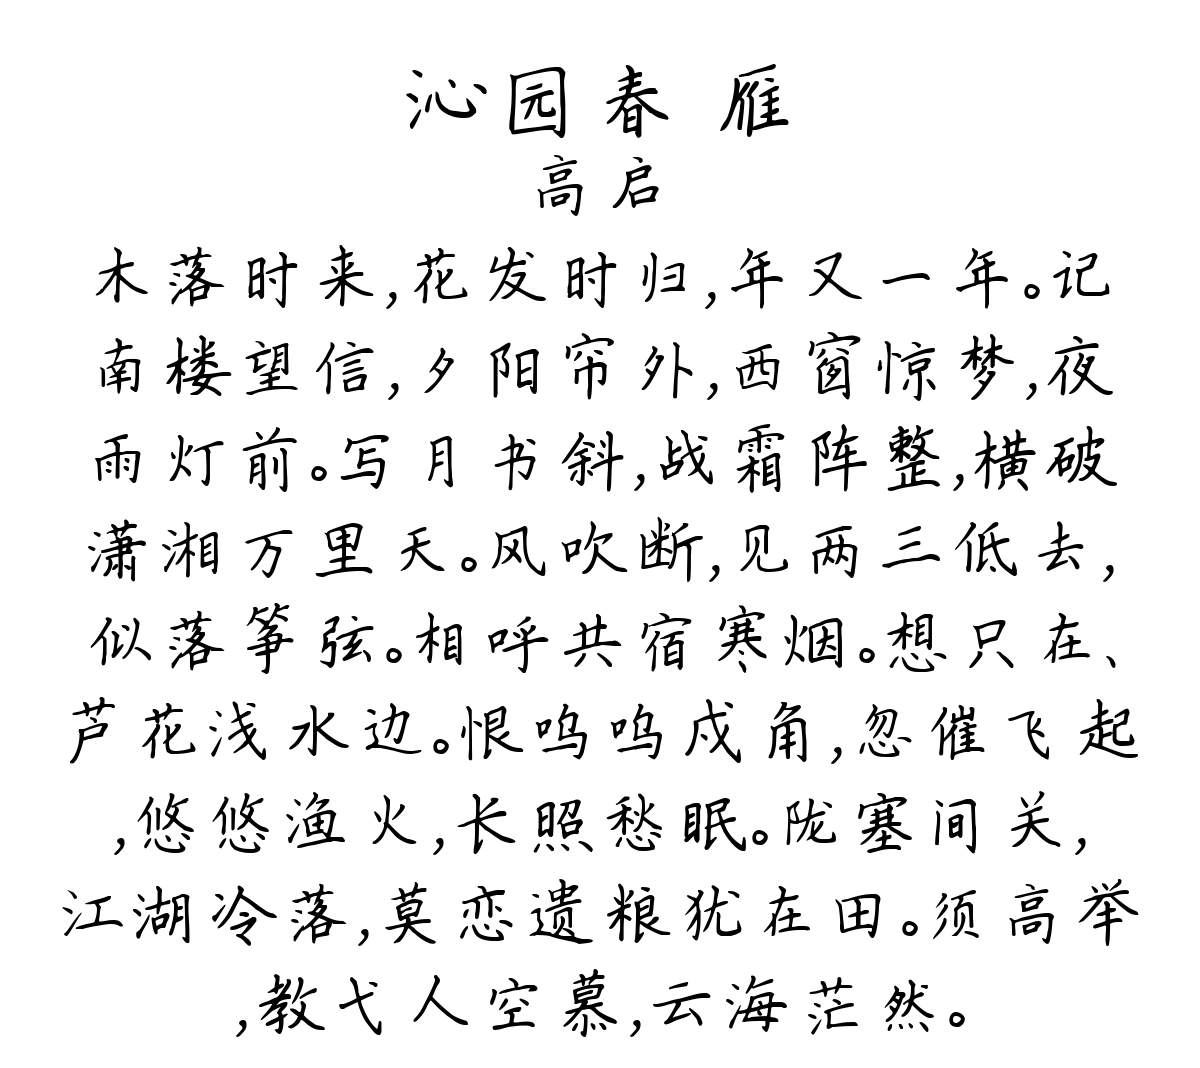 沁园春 雁
高启
木落时来,花发时归,年又一年。记
南楼望信,夕阳帘外,西窗惊梦,夜
雨灯前。写月书斜,战霜阵整,横破
潇湘万里天。风吹断,见两三低去,
似落筝弦。相呼共宿寒烟。想只在、
芦花浅水边。恨呜呜戍角,忽催飞起
,悠悠渔火,长照愁眠。陇塞间关,
江湖冷落,莫恋遗粮犹在田。须高举
,教弋人空慕,云海茫然。